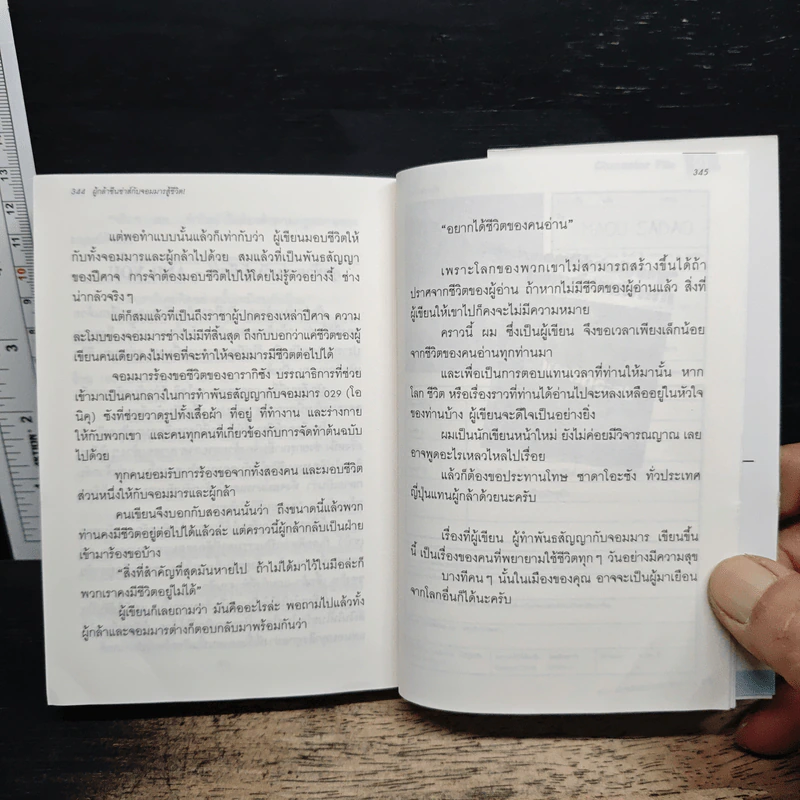 344 ผู้กล้าซึนซ่าส์กับจอมมารสู้ชีวิต!
แต่พอทำแบบนั้นแล้วก็เท่ากับว่า ผู้เขียนมอบชีวิตให้
กับทั้งจอมมารและผู้กล้าไปด้วย สมแล้วที่เป็นพันธสัญญา
ของปีศาจ การจำต้องมอบชีวิตไปให้โดยไม่รู้ตัวอย่างงี้ ช่าง
น่ากลัวจริงๆ
แต่ก็สมแล้วที่เป็นถึงราชาผู้ปกครองเหล่าปีศาจ ความ
ละโมบของจอมมารช่างไม่มีที่สิ้นสุด ถึงกับบอกว่าแค่ชีวิตของผู้
เขียนคนเดียวคงไม่พอที่จะทำให้จอมมารมีชีวิตต่อไปได้
จอมมารร้องขอชีวิตของอารากิซัง บรรณาธิการที่ช่วย
เข้ามาเป็นคนกลางในการทำพันธสัญญากับจอมมาร 029 (โอ
นิคุ) ซังที่ช่วยวาดรูปทั้งเสื้อผ้า ที่อยู่ ที่ทำงาน และร่างกาย
ให้กับพวกเขา และคนทุกคนที่เกี่ยวข้องกับการจัดทำต้นฉบับ
ไปด้วย
ทุกคนยอมรับการร้องขอจากทั้งสองคน และมอบชีวิต
ส่วนหนึ่งให้กับจอมมารและผู้กล้า
คนเขียนจึงบอกกับสองคนนั้นว่า ถึงขนาดนี้แล้วพวก
ท่านคงมีชีวิตอยู่ต่อไปได้แล้วล่ะ แต่คราวนี้ผู้กล้ากลับเป็นฝ่าย
เข้ามาร้องขอบ้าง
"สิ่งที่สำคัญที่สุดมันหายไป ถ้าไม่ได้มาไว้ในมือล่ะก็
พวกเราคงมีชีวิตอยู่ไม่ได้"
ผู้เขียนก็เลยถามว่า มันคืออะไรล่ะ พอถามไปแล้วทั้ง
ผู้กล้าและจอมมารต่างก็ตอบกลับมาพร้อมกันว่า
345
"อยากได้ชีวิตของคนอ่าน"
เพราะโลกของพวกเขาไม่สามารถสร้างขึ้นได้ถ้า
ปราศจากชีวิตของผู้อ่าน ถ้าหากไม่มีชีวิตของผู้อ่านแล้ว สิ่งที่
ผู้เขียนให้เขาไปก็คงจะไม่มีความหมาย
คราวนี้ ผม ซึ่งเป็นผู้เขียน จึงขอเวลาเพียงเล็กน้อย
จากชีวิตของคนอ่านทุกท่านมา
และเพื่อเป็นการตอบแทนเวลาที่ท่านให้มานั้น หาก
โลก ชีวิต หรือเรื่องราวที่ท่านได้อ่านไปจะหลงเหลืออยู่ในหัวใจ
ของท่านบ้าง ผู้เขียนจะดีใจเป็นอย่างยิ่ง
ผมเป็นนักเขียนหน้าใหม่ ยังไม่ค่อยมีวิจารณญาณ เลย
อาจพูดอะไรเหลวไหลไปเรื่อย
แล้วก็ต้องขอประทานโทษ ซาดาโอะซัง ทั่วประเทศ
ญี่ปุ่นแทนผู้กล้าด้วยนะครับ
เรื่องที่ผู้เขียน ผู้ทำพันธสัญญากับจอมมาร เขียนขึ้น
นี้ เป็นเรื่องของคนที่พยายามใช้ชีวิตทุกๆ วันอย่างมีความสุข
บางทีคนๆ นั้นในเมืองของคุณ อาจจะเป็นผู้มาเยือน
จากโลกอื่นก็ได้นะครับ